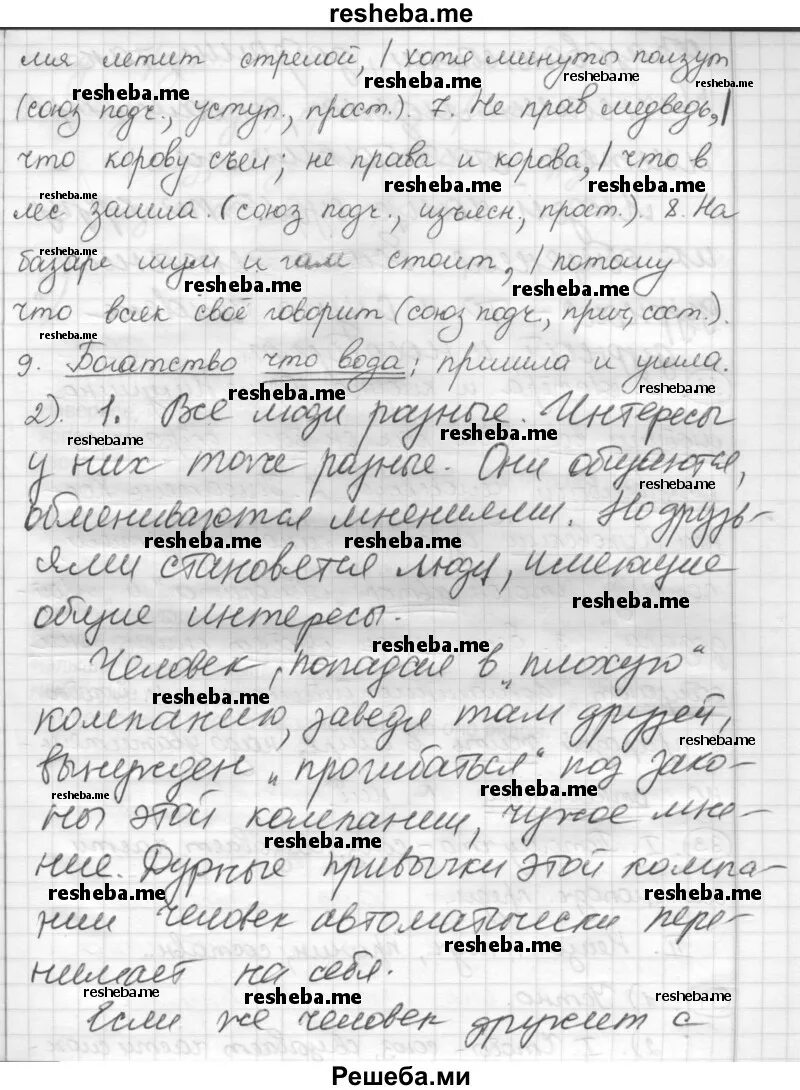 resheba.me
мя летит стрелой, / хотя минуты ползут
(союз подч., уступ., прост.). 7. Не прав медведь, /
что корову съел; не права и корова, / что в
лес зашла. (союз подч., изъясн, прост.). 8. На
базаре шум и гам стоит, / потому
что всяк своё говорит (союз подч., прич, сост.).
9. Богатство что вода; пришла и ушла.
2). 1. Все люди разные. Интересы
у них тоже разные. Они общаются,
обмениваются мнениями. Но друзь-
ями становятся люди, имеющие
общие интересы.
Человек, попадая в „плохую“
компанию, заведя там друзей,
вынужден „прогибаться“ под зако-
ны этой компании, чужое мне-
ние. Дурные привычки этой компа-
нии человек автоматически пере-
нимает на себя.
Если же человек дружит с
Решеба.ми